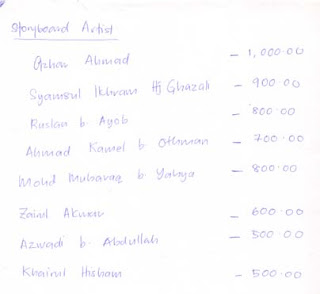 Storyboard Artist
Azhar Ahmad - 1,000.00
Syamsul Ikhram Hj Ghazali - 900.00
Ruslan b. Ayob - 800.00
Ahmad Kamel b. Othman - 700.00
Mohd Muharaq b. Yahya - 800.00
Zainl - 600.00
Azwadi b. Abdullah - 500.00
Khairul Hisham - 500.00